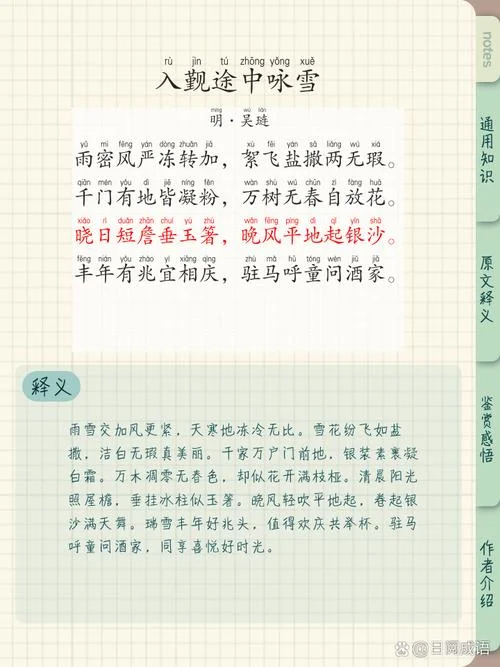 rù jìn tú zhōng yǒng xuě
入觐途中咏雪
míng wú liǎn
明·吴琏
yǔ mì fēng yán dòng zhuǎn jiā xù fēi yán sā liǎng wú xiá
雨密风严冻转加，絮飞盐撒两无瑕。
qiān mén yǒu dì jiē níng fěn wàn shù wú chūn zì fàng huā
千门有地皆凝粉，万树无春自放花。
xiǎo rì duǎn zhān chuí yù zhù wǎn fēng píng dì qǐ yín shā
晓日短詹垂玉箸，晚风平地起银沙。
fēng nián yǒu zhào yí xiāng qìng zhù mǎ hū tóng wèn jiǔ jiā
丰年有兆宜相庆，驻马呼童问酒家。
释义
雨雪交加风更紧，天寒地冻冷无比。雪花纷飞如盐
撒，洁白无瑕真美丽。千家万户门前地，银装素裹凝
白霜。万木凋零无春色，却似花开满枝桠。清晨阳光
照屋檐，垂挂冰柱似玉箸。晚风轻吹平地起，卷起银
沙满天舞。瑞雪丰年好兆头，值得欢庆共举杯。驻马
呼童问酒家，同享喜悦好时光。
notes
通用知识
原文释义
鉴赏感悟
作者介绍
@日阅成语